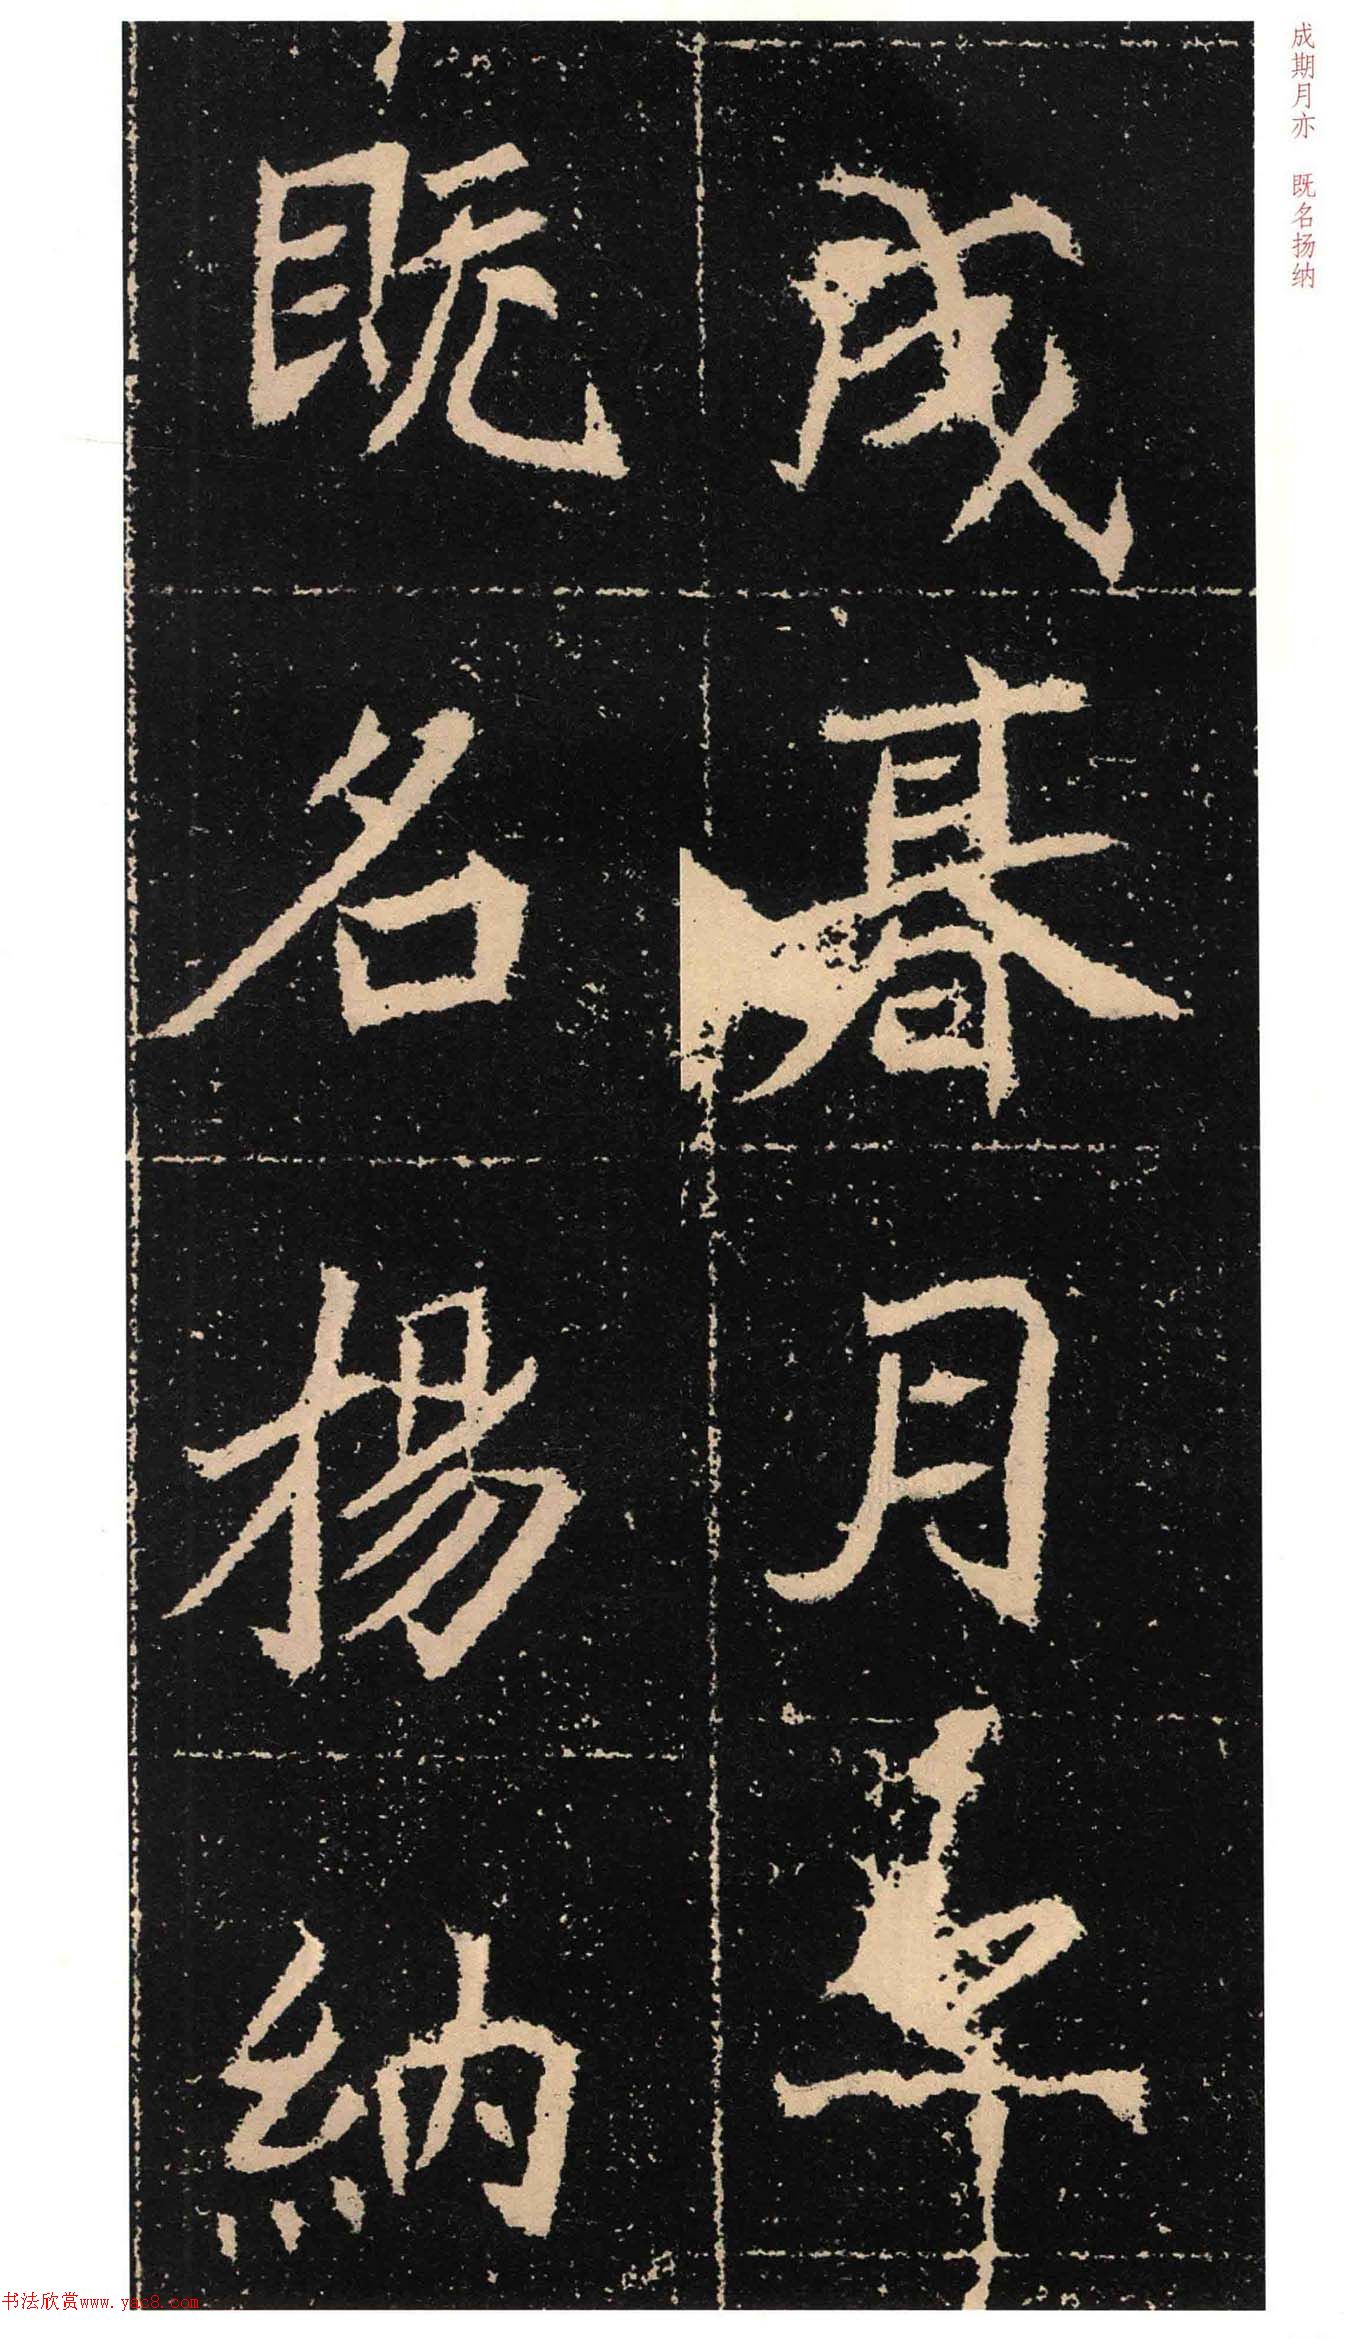 成期月亦 既名扬纳
成朞月
既名揚納
书法欣赏www.yac8.com